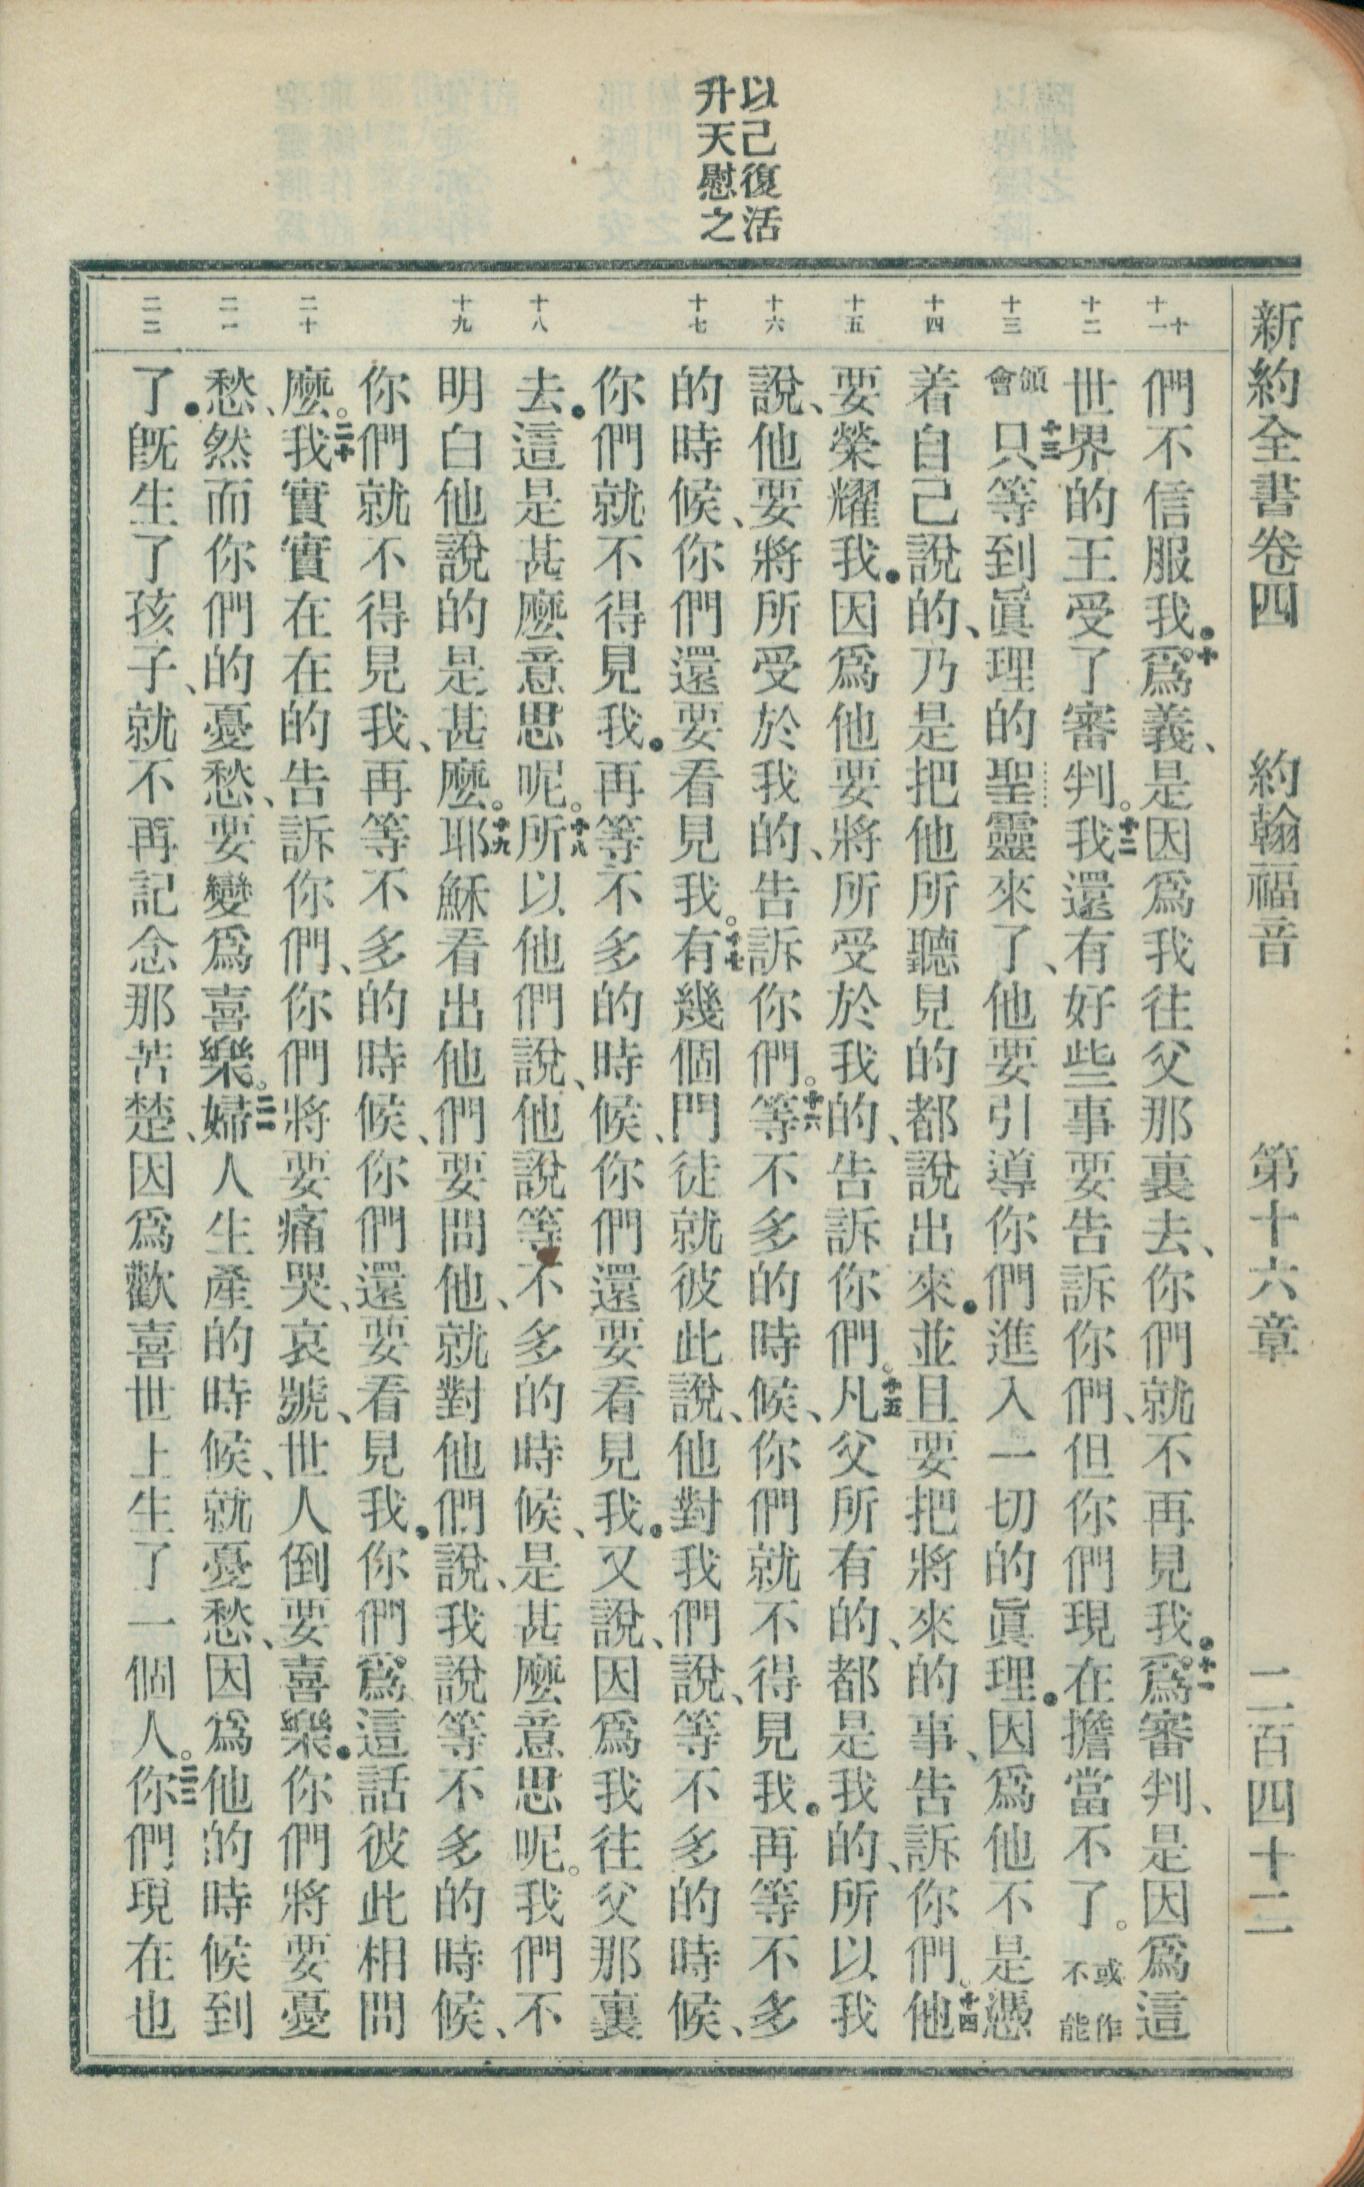 以己復活
升天慰之
新約全書卷四 約翰福音 第十六章 二百四十二
十 十一
們不信服我．十爲義、是因爲我往父那裏去、你們就不再見我．十一爲審判、是因爲這
十二
世界的王受了審判。十二我還有好些事要告訴你們、但你們現在擔當不了。或作不能
十三
領會十三只等到眞理的聖靈來了、他要引導你們進入一切的眞理．因爲他不是憑
十四
着自己說的、乃是把他所聽見的都說出來．並且要把將來的事、告訴你們。十四他
十五
要榮耀我．因爲他要將所受於我的、告訴你們。十五凡父所有的、都是我的、所以我
十六
說、他要將所受於我的、告訴你們。十六等不多的時候、你們就不得見我．再等不多
十七
的時候、你們還要看見我。十七有幾個門徒就彼此說、他對我們說、等不多的時候、
你們就不得見我．再等不多的時候、你們還要看見我．又說、因爲我往父那裏
十八
去．這是甚麼意思呢。十八所以他們說、他說等不多的時候、是甚麼意思呢。我們不
十九
明白他說的是甚麼。十九耶穌看出他們要問他、就對他們說、我說等不多的時候、
你們就不得見我、再等不多的時候、你們還要看見我．你們爲這話彼此相問
二十
麼。二十我實實在在的告訴你們、你們將要痛哭、哀號、世人倒要喜樂．你們將要憂
二一
愁、然而你們的憂愁、要變爲喜樂。二一婦人生產的時候、就憂愁、因爲他的時候到
二二
了．旣生了孩子、就不再記念那苦楚、因爲歡喜世上生了一個人。二二你們現在也